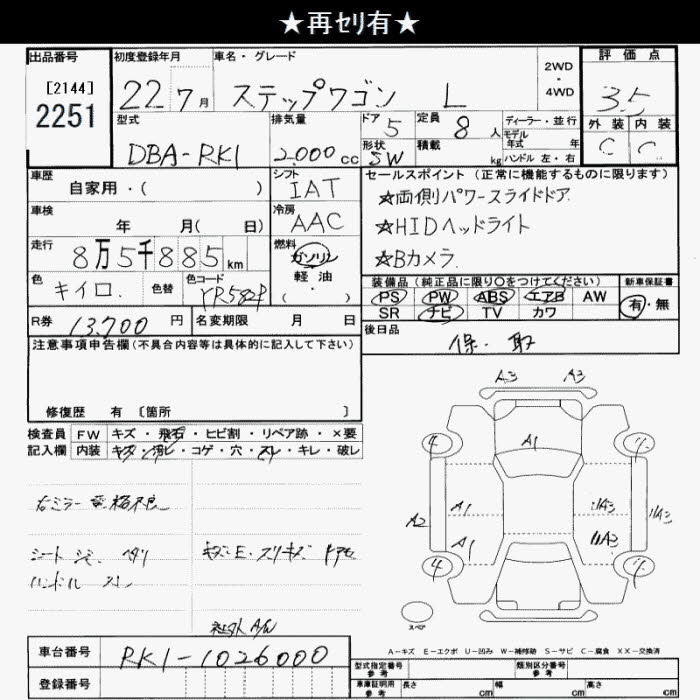 ★再セリ有★
出品番号 初度登録年月 車名・グレード 評価点
[2144]
2251
22年7月 ステップワゴン L
2WD
・
4WD
3.5
型式 排気量 ドア 定員 ディーラー・並行 外装 内装
DBA-RK1 2000cc 5 8人
モデル年式 年
形状 SW 積載 kg ハンドル 左・右
C C
車歴 自家用・( )
シフト IAT
セールスポイント (正常に機能するものに限ります)
☆両側パワースライドドア
車検 年 月( 日)
冷房 AAC
☆HIDヘッドライト
走行 8万5千885km
燃料 ガソリン
軽・油
☆Bカメラ
色 キイロ. 色替 色コード YR582P
装備品 (純正品に限り○をつけてください) 新車保証書
PS PW ABS エアB AW 有・無
SR ナビ TV カワ
R券 13,700円 名変期限 月 日
後日品 保・取
注意事項申告欄(不具合内容等は具体的に記入して下さい)
修復歴 有 〔箇所 〕
検査員 FW キズ・飛石・ヒビ割・リペア跡・×要
記入欄 内装 キズ・汚レ・コゲ・穴・スレ・キレ・破レ
A3 A3
4 A1
A2 A1 A3 A3
A1 A3
4
右ミラー 格 不良
シート シミ ヘタリ キズ・E・スリキズ
ハンドル スレ
社外A/W
スペア
A-キズ E-エクボ U-凹み W-補修跡 S-サビ C-腐食 XX-交換済
車台番号 RK1-1026000
型式指定番号 参考 類別区分番号 参考
登録番号
車庫証明用 参考 長さ cm 幅 cm 高さ cm